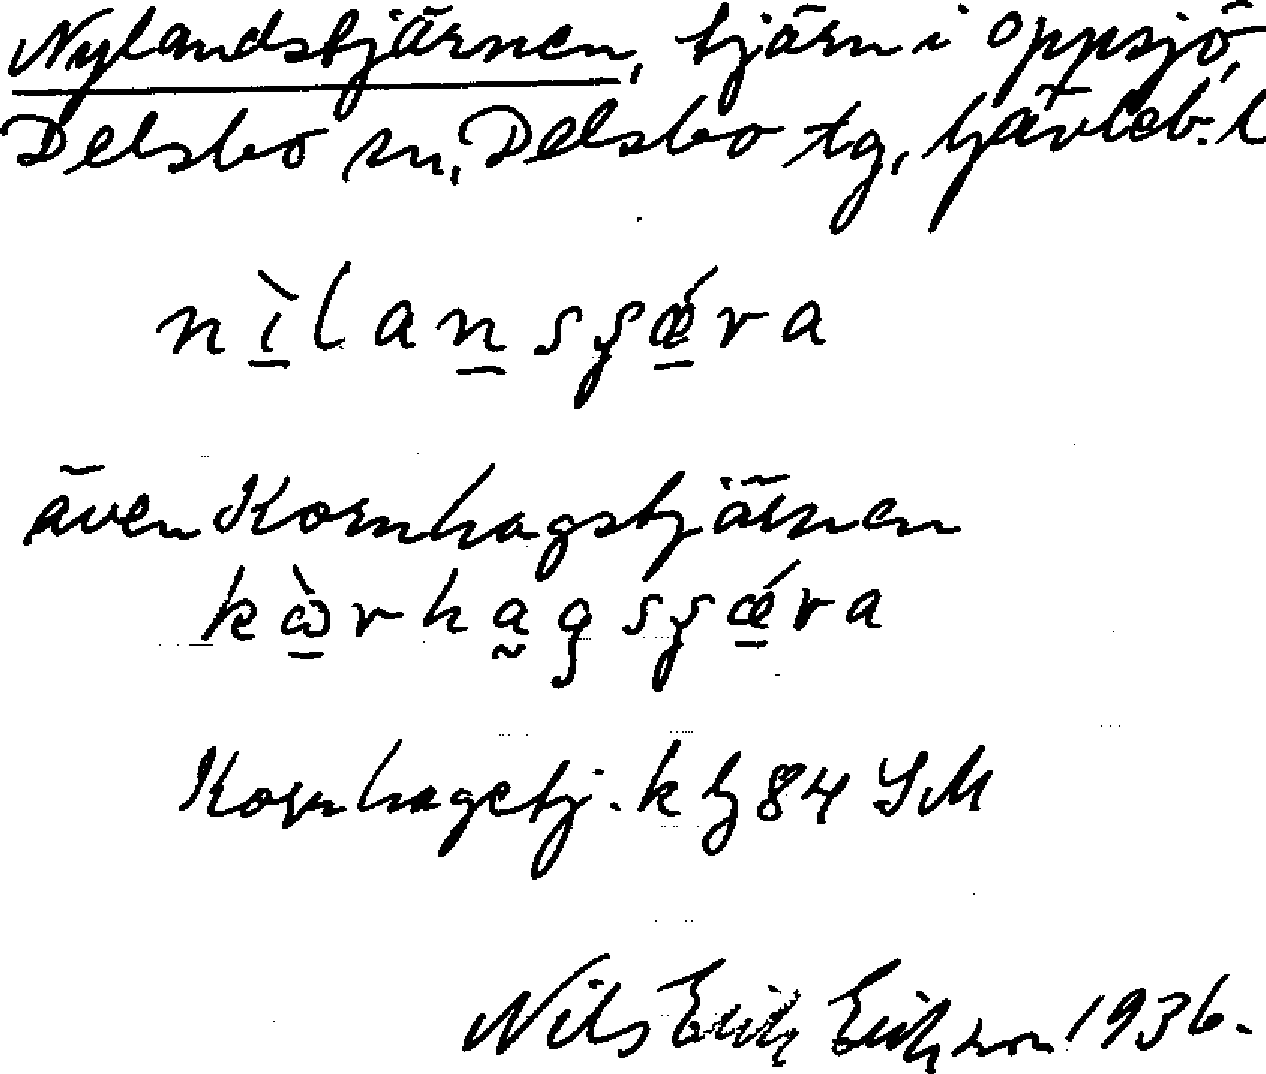 Nylandstjärnen, tjärn i Oppsjö,
Delsbo sn, Delsbo tg, Gävleb. l
nìlansʂǽra
även Kornhagstjärnen
kòrhagsʂǽra
Kornhagetj. k bl 84 SM
Nils Erik Erikson 1936.